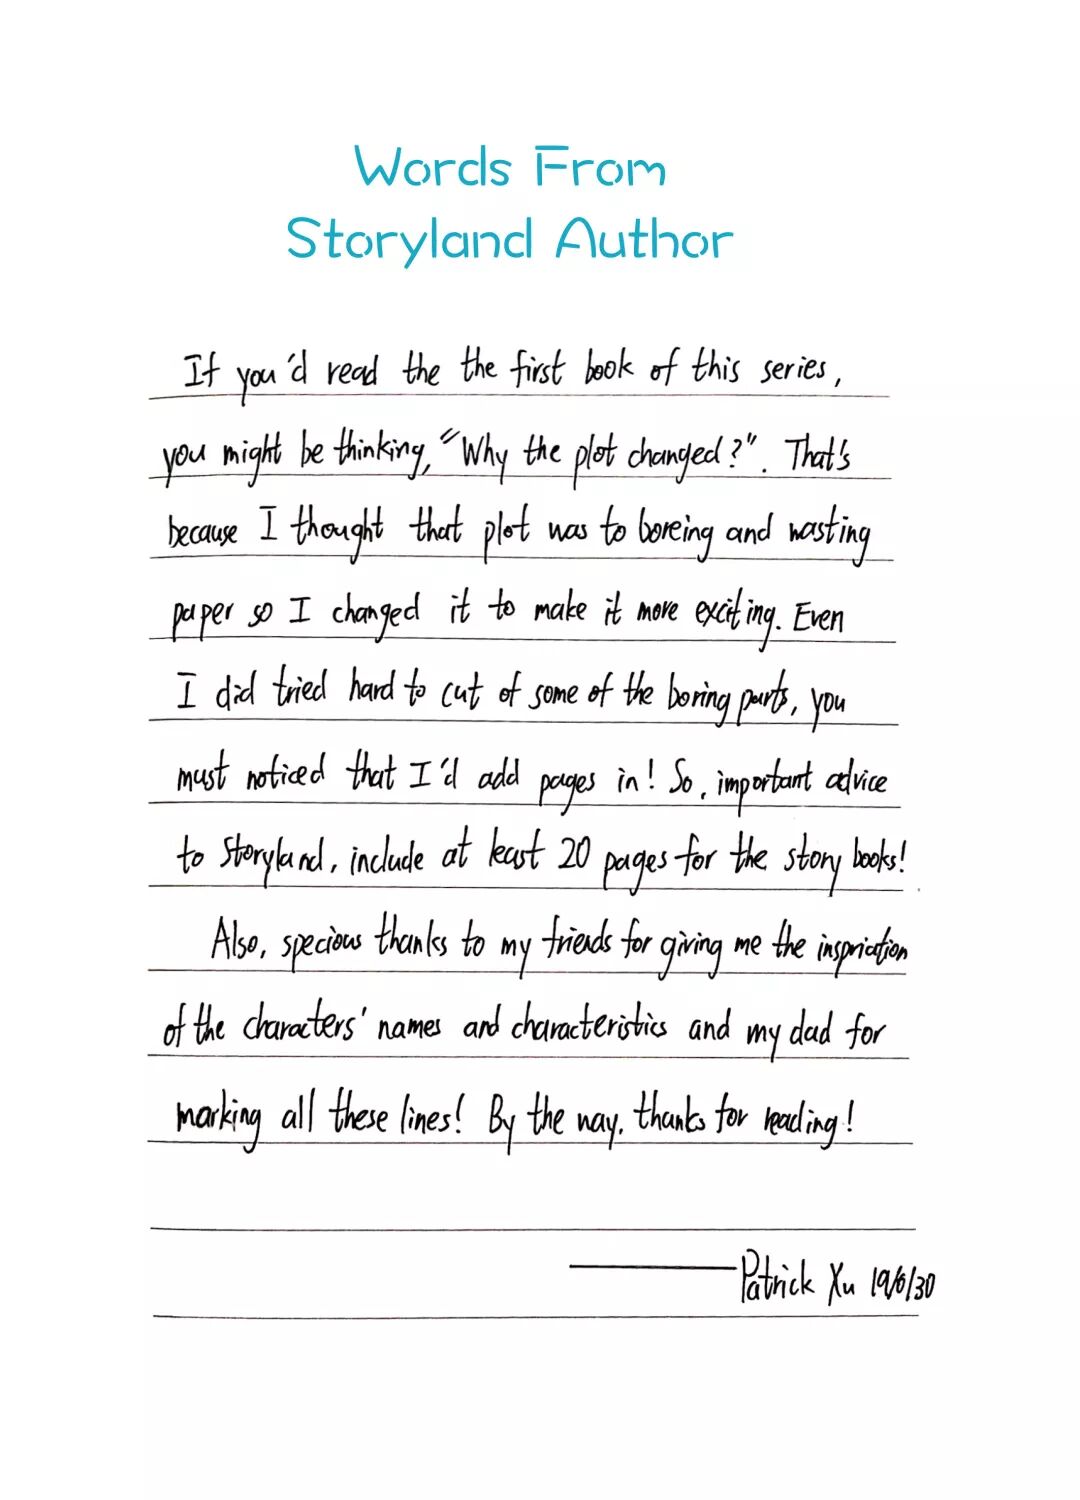 Words From
Storyland Author
If you'd read the the first book of this series,
you might be thinking, "Why the plot changed?". That's
because I thought that plot was to boreing and wasting
paper so I changed it to make it more exciting. Even
I did tried hard to cut of some of the boring parts, you
must noticed that I'd add pages in! So, important advice
to Storyland, include at least 20 pages for the story books!
Also, specious thanks to my friends for giving me the inspriation
of the characters' names and characteristics and my dad for
marking all these lines! By the way, thanks for reading!
——Patrick Xu 19/6/30